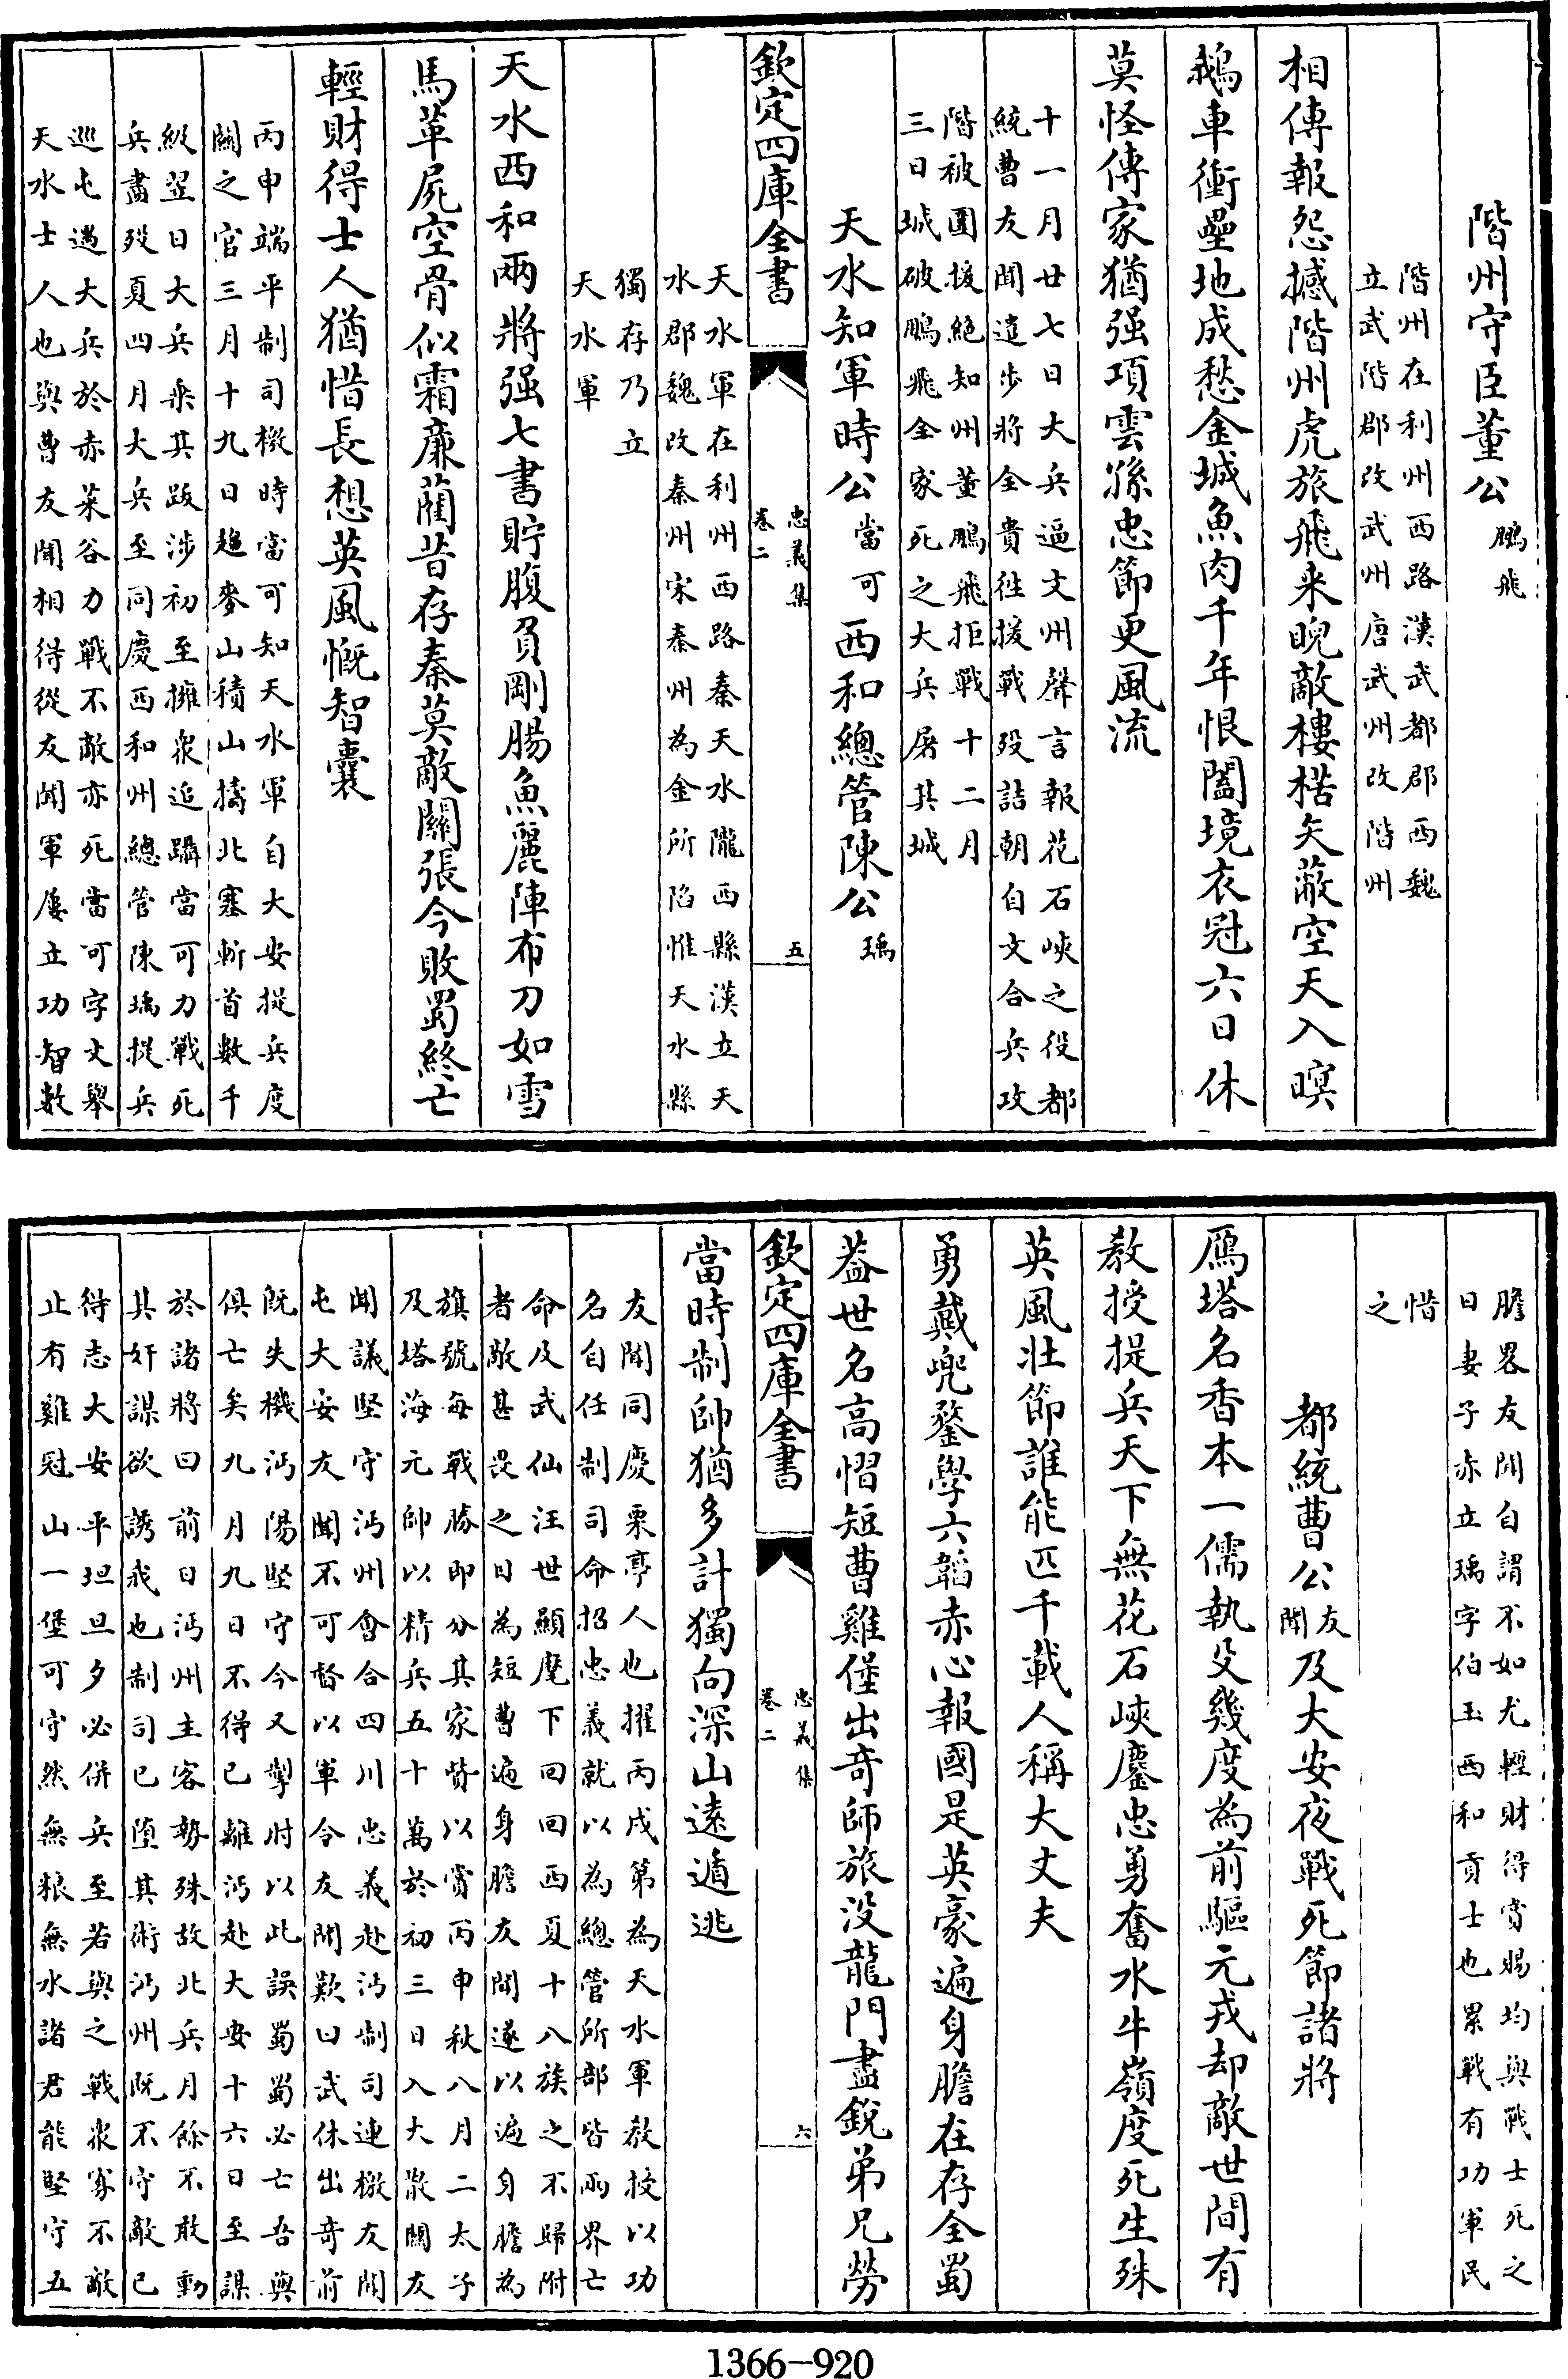 階州守臣董公鵬飛
階州在利州西路漢武都郡西魏
立武階郡改武州唐武州改階州
相傳報怨撼階州虎旅飛来睨敵樓楛矢蔽空天入暝
鵝車衝壘地成愁金城魚肉千年恨闔境衣冠六日休
莫怪傳家猶强項雲孫忠節更風流
十一月廿七日大兵逼文州聲言報花石峽之役都
統曹友聞遣步將全貴徃援戰殁詰朝自文合兵攻
階被圍援絶知州董鵬飛拒戰十二月
三日城破鵬飛全家死之大兵屠其城
天水知軍時公當可西和總管陳公瑀
欽定四庫全書
忠義集
卷二
五
天水軍在利州西路秦天水隴西縣漢立天
水郡魏改秦州宋秦州為金所陷惟天水縣
獨存乃立
天水軍
天水西和兩將强七書貯腹負剛腸魚麗陣布刀如雪
馬革屍空骨似霜廉藺昔存秦莫敵關張今敗蜀終亡
輕財得士人猶惜長想英風慨智囊
丙申端平制司檄時當可知天水軍自大安提兵度
關之官三月十九日趨麥山積山擣北塞斬首數千
級翌日大兵乗其跋涉初至擁衆追躡當可力戰死
兵盡殁夏四月大兵至同慶西和州總管陳瑀提兵
巡屯遇大兵於赤菜谷力戰不敵亦死當可字文舉
天水士人也與曹友聞相得從友聞軍屢立功智數
膽畧友聞自謂不如尤輕財得賞賜均與戰士死之
日妻子赤立瑀字伯玉西和貢士也累戰有功軍民
惜
之
都統曹公友聞及大安夜戰死節諸將
鴈塔名香本一儒執殳幾度為前驅元戎却敵世間有
教授提兵天下無花石峽鏖忠勇奮水牛嶺度死生殊
英風壯節誰能匹千載人稱大丈夫
勇戴兜鍪學六韜赤心報國是英豪遍身膽在存全蜀
葢世名高慴短曹雞堡出奇師旅没龍門盡銳弟兄勞
欽定四庫全書
忠義集
卷二
六
當時制帥猶多計獨向深山逺遁逃
友聞同慶栗亭人也擢丙戌第為天水軍教授以功
名自任制司命招忠義就以為總管所部皆兩界亡
命及武仙汪世顯麾下回回西夏十八族之不歸附
者敵甚畏之日為短曹遍身膽友聞遂以遍身膽為
旗號每戰勝即分其家貲以賞丙申秋八月二太子
及塔海元帥以精兵五十萬於初三日入大散關友
聞議堅守沔州會合四川忠義赴沔制司連檄友聞
屯大安友聞不可督以軍令友聞歎曰武休出奇前
既失機沔陽堅守今又掣肘以此誤蜀蜀必亡吾與
俱亡矣九月九日不得已離沔赴大安十六日至謀
於諸將曰前日沔州主客勢殊故北兵月餘不敢動
其奸謀欲誘我也制司已墮其術沔州既不守敵已
得志大安平坦旦夕必併兵至若與之戰衆寡不敵
止有雞冠山一堡可守然無粮無水諸君能堅守五
1366-920